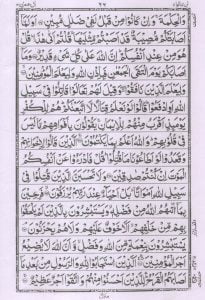 وَالْحِكْمَةَ وَاِنْ كَانُوْا مِنْ قَبْلُ لَفِيْ ضَلٰلٍ مُّبِيْنٍ اَوَلَمَّآ
اَصَابَتْكُمْ مُّصِيْبَةٌ قَدْ اَصَبْتُمْ مِّثْلَيْهَا قُلْتُمْ اَنّٰى هٰذَا قُلْ
هُوَ مِنْ عِنْدِ اَنْفُسِكُمْ اِنَّ اللّٰهَ عَلٰى كُلِّ شَيْءٍ قَدِيْرٌ وَمَآ
اَصَابَكُمْ يَوْمَ الْتَقَى الْجَمْعٰنِ فَبِاِذْنِ اللّٰهِ وَلِيَعْلَمَ الْمُؤْمِنِيْنَ
وَلِيَعْلَمَ الَّذِيْنَ نَافَقُوْا وَقِيْلَ لَهُمْ تَعَالَوْا قَاتِلُوْا فِيْ سَبِيْلِ
اللّٰهِ اَوِ ادْفَعُوْا قَالُوْا لَوْ نَعْلَمُ قِتَالًا لَّاتَّبَعْنٰكُمْ هُمْ لِلْكُفْرِ
يَوْمَئِذٍ اَقْرَبُ مِنْهُمْ لِلْاِيْمَانِ يَقُوْلُوْنَ بِاَفْوَاهِهِمْ مَّا لَيْسَ
فِيْ قُلُوْبِهِمْ وَاللّٰهُ اَعْلَمُ بِمَا يَكْتُمُوْنَ اَلَّذِيْنَ قَالُوْا لِاِخْوَانِهِمْ
وَقَعَدُوْا لَوْ اَطَاعُوْنَا مَا قُتِلُوْا قُلْ فَادْرَءُوْا عَنْ اَنْفُسِكُمُ
الْمَوْتَ اِنْ كُنْتُمْ صٰدِقِيْنَ وَلَا تَحْسَبَنَّ الَّذِيْنَ قُتِلُوْا فِيْ
سَبِيْلِ اللّٰهِ اَمْوَاتًا بَلْ اَحْيَآءٌ عِنْدَ رَبِّهِمْ يُرْزَقُوْنَ فَرِحِيْنَ
بِمَآ اٰتٰىهُمُ اللّٰهُ مِنْ فَضْلِهٖ وَيَسْتَبْشِرُوْنَ بِالَّذِيْنَ لَمْ
يَلْحَقُوْا بِهِمْ مِّنْ خَلْفِهِمْ اَلَّا خَوْفٌ عَلَيْهِمْ وَلَا هُمْ يَحْزَنُوْنَ
يَسْتَبْشِرُوْنَ بِنِعْمَةٍ مِّنَ اللّٰهِ وَفَضْلٍ وَّاَنَّ اللّٰهَ لَا يُضِيْعُ
اَجْرَ الْمُؤْمِنِيْنَ اَلَّذِيْنَ اسْتَجَابُوْا لِلّٰهِ وَالرَّسُوْلِ مِنْ بَعْدِ مَآ
اَصَابَهُمُ الْقَرْحُ لِلَّذِيْنَ اَحْسَنُوْا مِنْهُمْ وَاتَّقَوْا اَجْرٌ عَظِيْمٌ